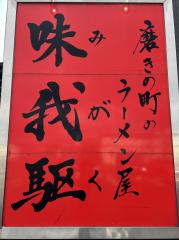 磨きの町の
ラーメン屋
味我駆
みがく